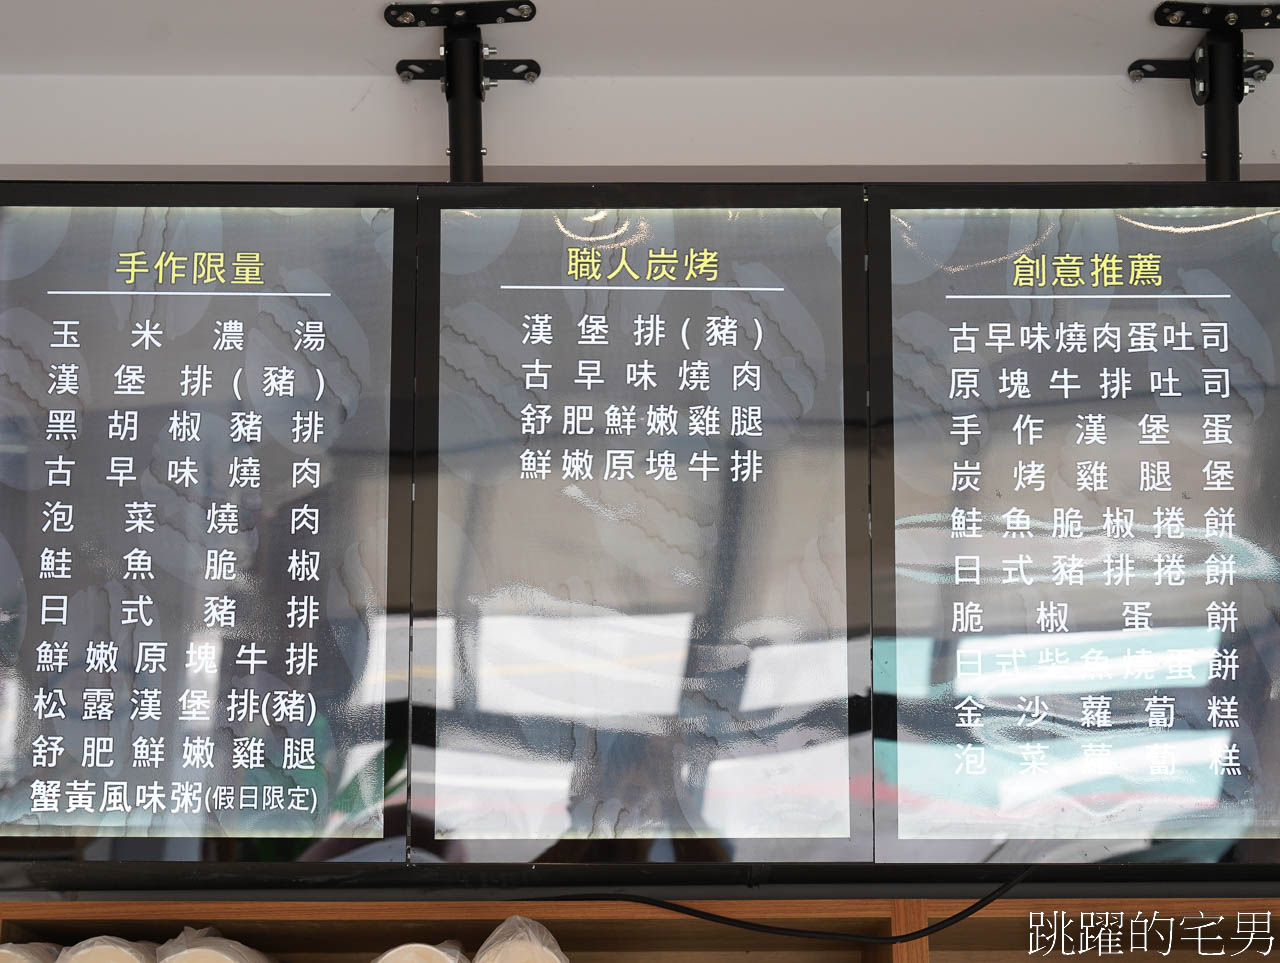 手作限量
玉米濃湯
漢堡排(豬)
黑胡椒豬排
古早味燒肉
泡菜燒肉
鮭魚脆椒
日式豬排
鮮嫩原塊牛排
松露漢堡排(豬)
舒肥鮮嫩雞腿
蟹黃風味粥(假日限定)
職人炭烤
漢堡排(豬)
古早味燒肉
舒肥鮮嫩雞腿
鮮嫩原塊牛排
創意推薦
古早味燒肉蛋吐司
原塊牛排吐司
手作漢堡蛋
炭烤雞腿堡
鮭魚脆椒捲餅
日式豬排捲餅
脆椒蛋餅
日式柴魚燒蛋餅
金沙蘿蔔糕
泡菜蘿蔔糕
跳躍的宅男